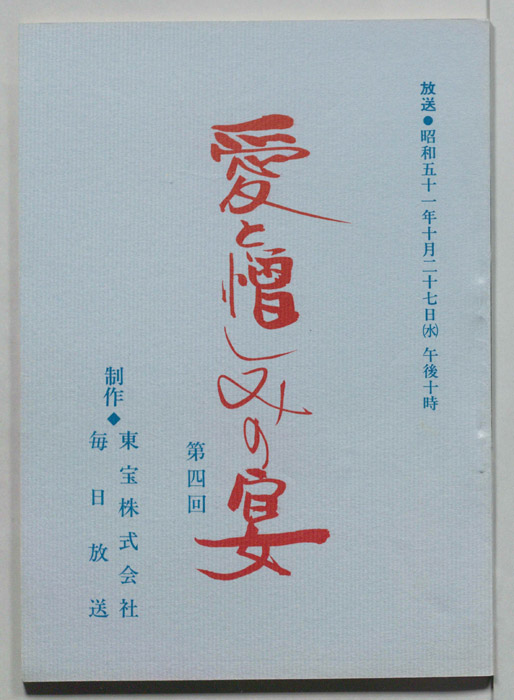 放送●昭和五十一年十月二十七日㈬ 午後十時
愛と憎しみの宴
第四回
制作◆東宝株式会社
毎日放送